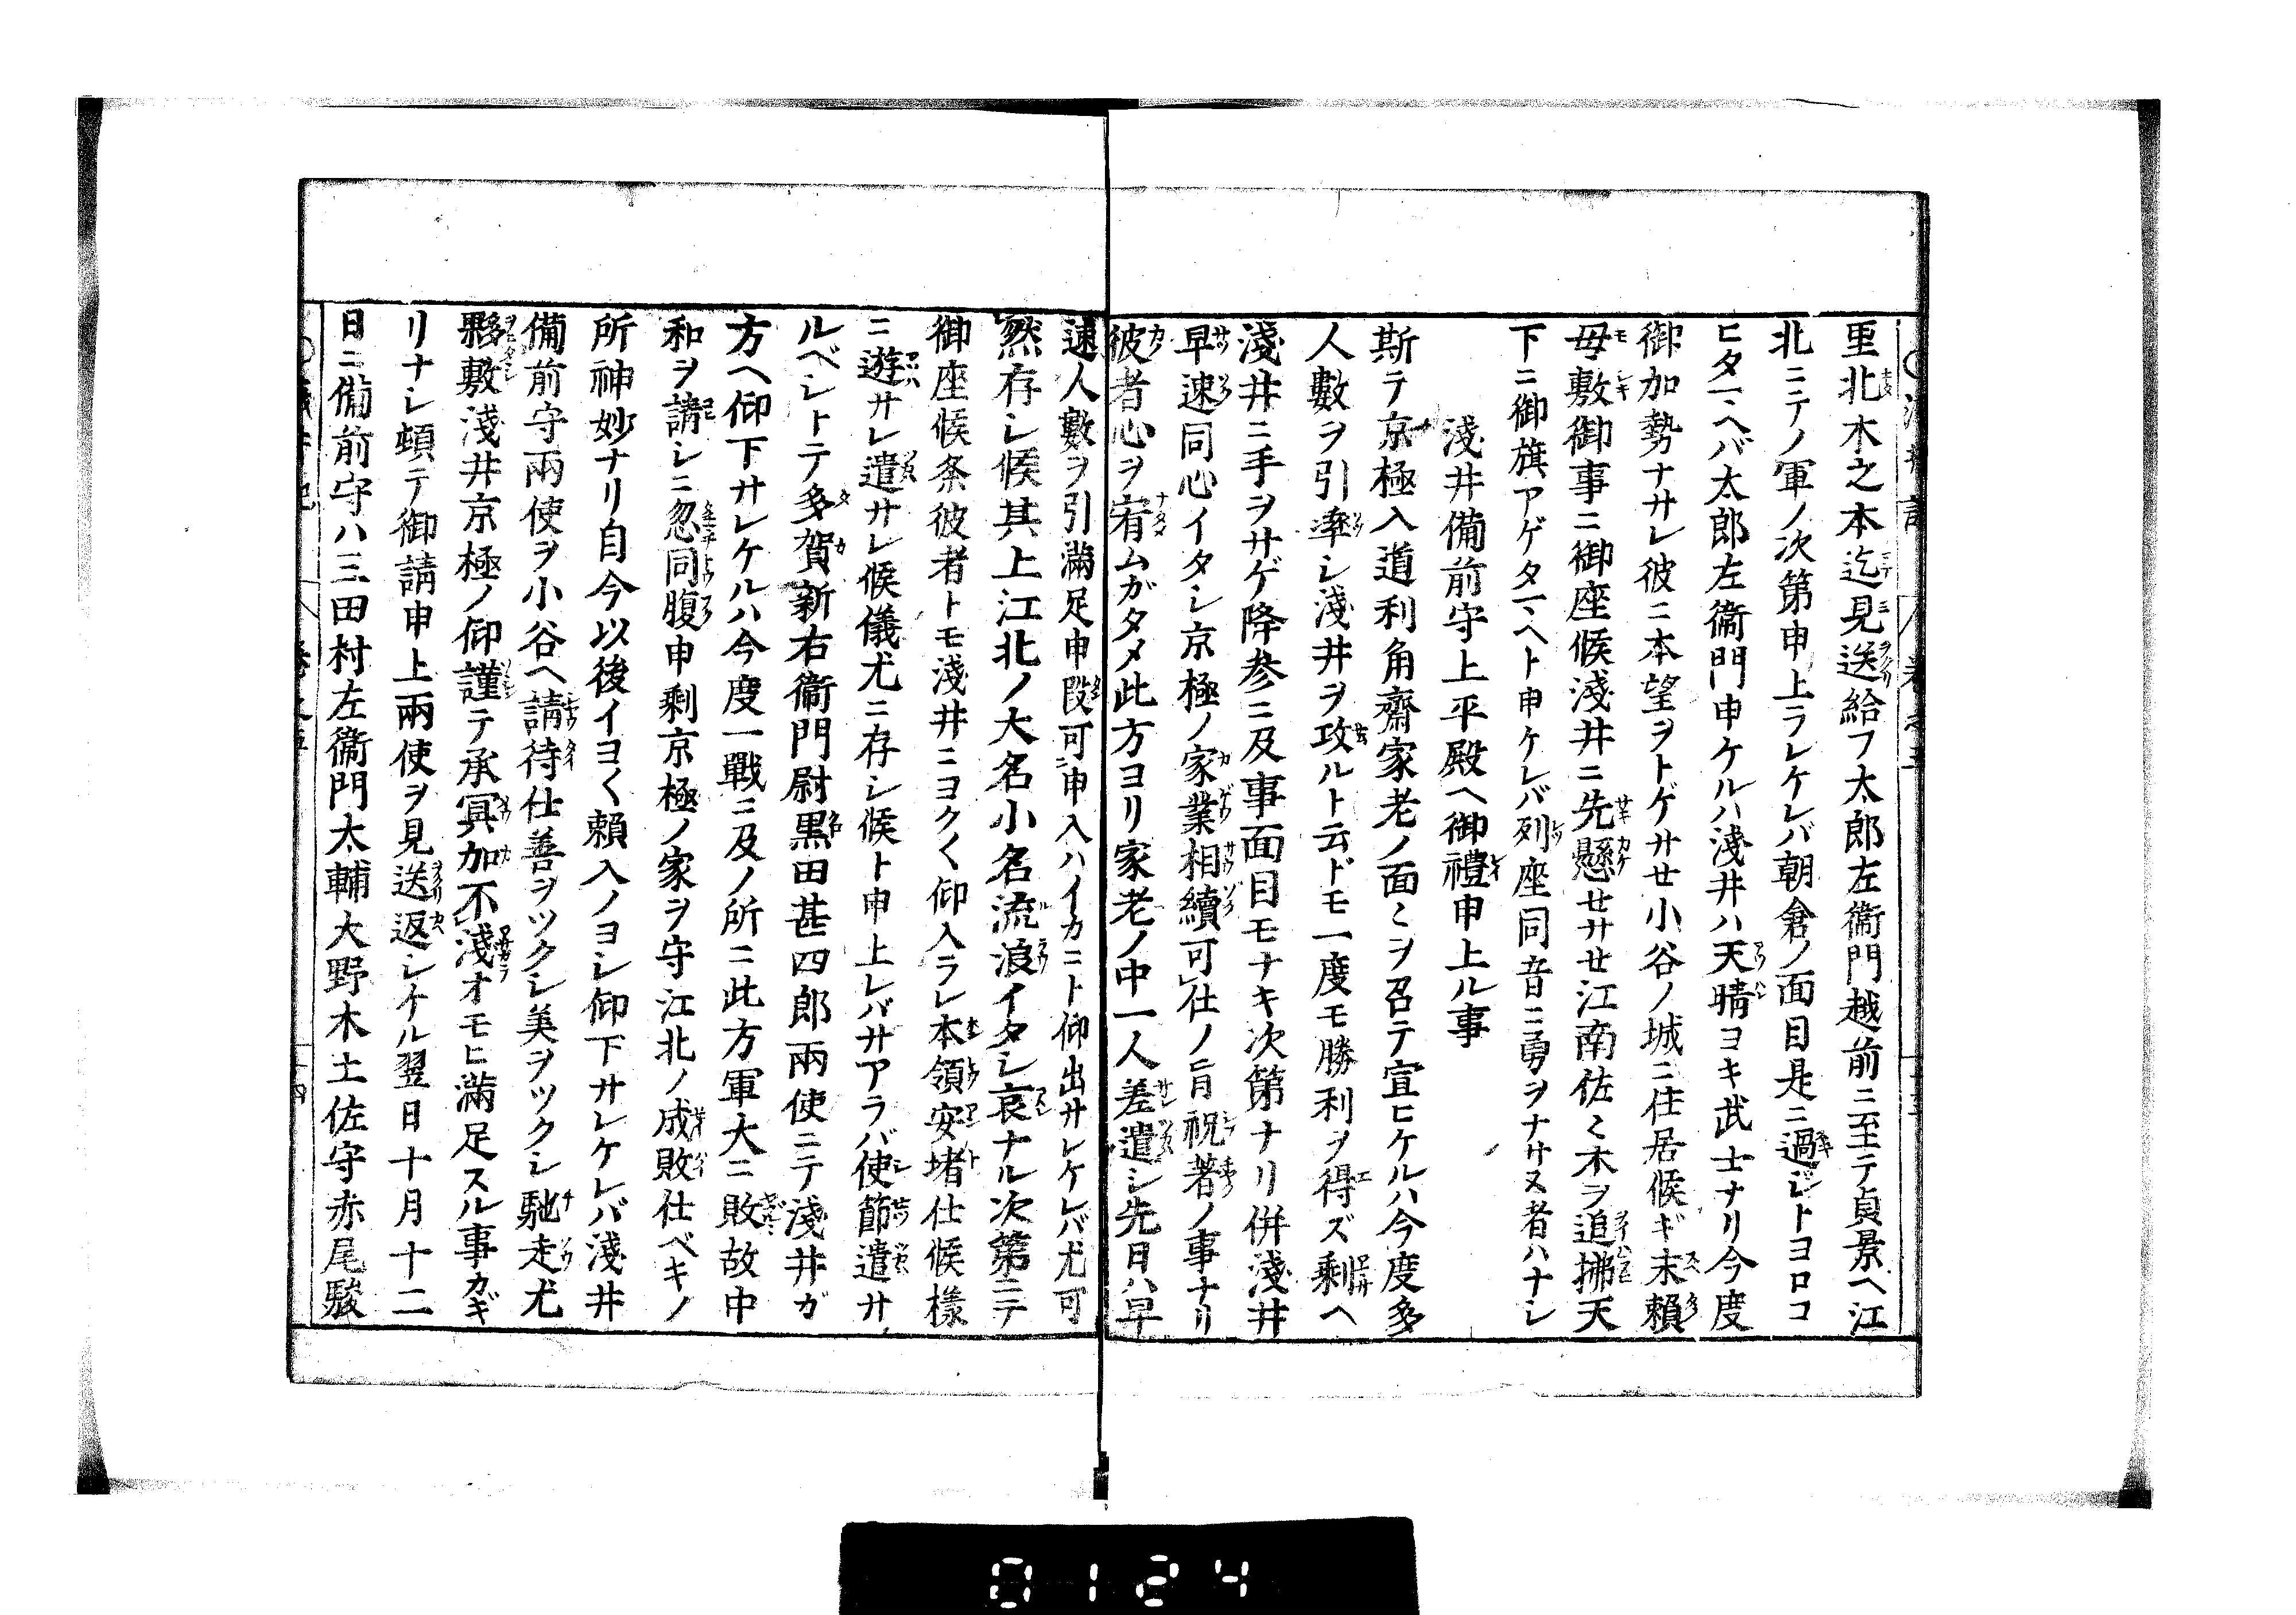 里北木之本迄見送給フ太郎左衞門越前ニ至テ貞景ヘ江
北ニテノ軍ノ次第申上ラレケレバ朝倉ノ面目是ニ過ジトヨロコ
ヒタマヘバ太郎左衞門申ケルハ淺井ハ天晴ヨキ武士ナリ今度
御加勢ナサレ彼ニ本望ヲトゲサセ小谷ノ城ニ住居候ギ末頼
母敷御事ニ御座候淺井ニ先懸セサセ江南佐々木ヲ追拂天
下ニ御旗アゲタマヘト申ケレバ列座同音ニ勇ヲナサヌ者ハナシ
淺井備前守上平殿ヘ御禮申上ル事
斯テ京極入道利角齋家老ノ面々ヲ召テ宣ヒケルハ今度多
人數ヲ引率シ淺井ヲ攻ルト云ドモ一度モ勝利ヲ得ズ剩ヘ
淺井ニ手ヲサゲ降參ニ及事面目モナキ次第ナリ併淺井
早速同心イタシ京極ノ家業相續可仕ノ旨祝著ノ事ナリ
彼者心ヲ宥ムガタメ此方ヨリ家老ノ中一人差遣シ先日ハ早
速人數ヲ引滿足申段可申入ハイカニト仰出サレケレバ尤可
然存シ候其上江北ノ大名小名流浪イタシ哀ナル次第ニテ
御座候条彼者トモ淺井ニヨク〱仰入ラレ本領安堵仕候樣
ニ遊サレ遣サレ候儀尤ニ存シ候ト申上レバサアラバ使節遣サ
ルベシトテ多賀新右衞門尉黒田甚四郎兩使ニテ淺井ガ
方ヘ仰下サレケルハ今度一戰ニ及ノ所ニ此方軍大ニ敗故中
和ヲ請シニ忽同腹申剩京極ノ家ヲ守江北ノ成敗仕ベキノ
所神妙ナリ自今以後イヨ〱頼入ノヨシ仰下サレケレバ淺井
備前守兩使ヲ小谷ヘ請待仕善ヲツクシ美ヲツクシ馳走尤
夥敷淺井京極ノ仰謹テ承冥加不淺オモヒ滿足スル事カギ
リナシ頓テ御請申上兩使ヲ見送返シケル翌日十月十二
日ニ備前守ハ三田村左衞門太輔大野木土佐守赤尾駿
0124